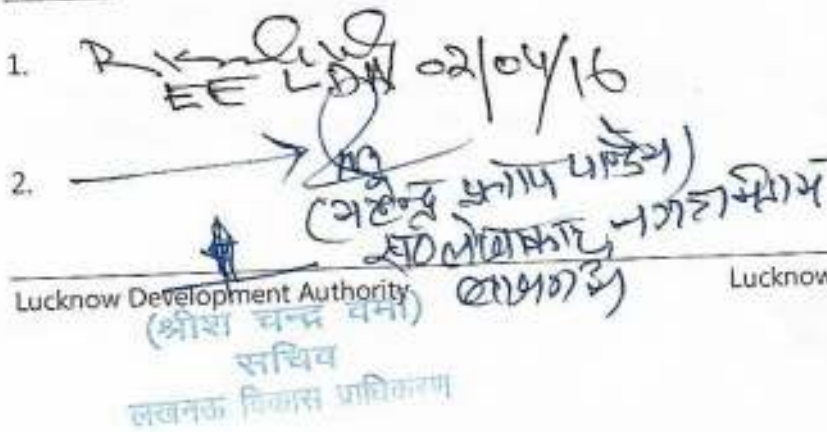 1. EE LDA 02/04/16
2.
(महेन्द्र प्रताप पाण्डेय)
नगर निगम
Lucknow Development Authority
Lucknow
(श्रीश चन्द्र वर्मा)
सचिव
लखनऊ विकास प्राधिकरण